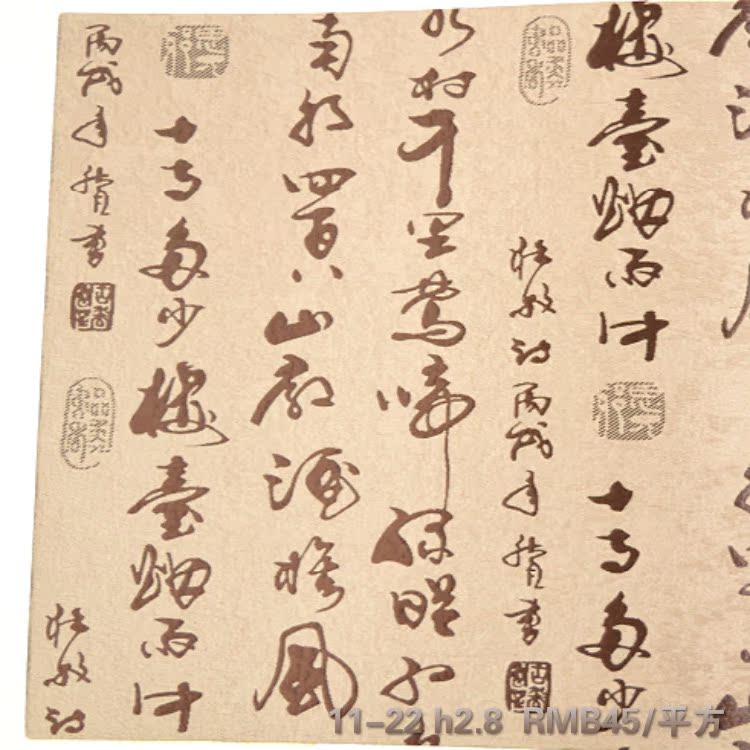 樓臺煙雨中
十寺多少
杜牧詩
丙戌年
書
水村千里鶯啼綠映紅
南朝四百八山郭酒旗風
十寺多少樓臺煙雨中
丙戌年
書
杜牧詩
11-22 h2.8 RMB45/平方